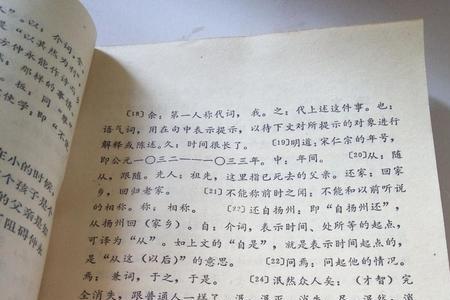 ”。以〕介词，
“以其然为
方仲永能作诗
；那样的事情
。扳：同“
使学：即“不
在小的时候
个孩子是个
的父亲是如
了阻碍仲永
〔18〕余：第一人称代词，我。之：代上述这件事。也：
语气词，用在句中表示提示，以待下文对所提示的对象进行
解释或陈述。久：时间很长了。 〔19〕明道：宋仁宗的年号，
即公元一〇三二——一〇三三年。中：年间。 〔20〕从：随
从，跟随。先人：祖先，这里指已死去的父亲。还家：回家
乡，回归老家。 〔21〕不能称前时之闻：不能和以前听说
的相称。称：相称。 〔22〕还自扬州：即“自扬州还”，
从扬州回（家乡）。自：介词，表示时间、处所等的起点，
可译为“从”。如上文的“自是”，就是表示时间起点的，
是“从这（以后）”的意思。 〔22〕问焉：问起他的情况。
焉：兼词，于之，于是。 〔24〕泯然众人矣：（才智）完
全消失，跟普通人一样了。